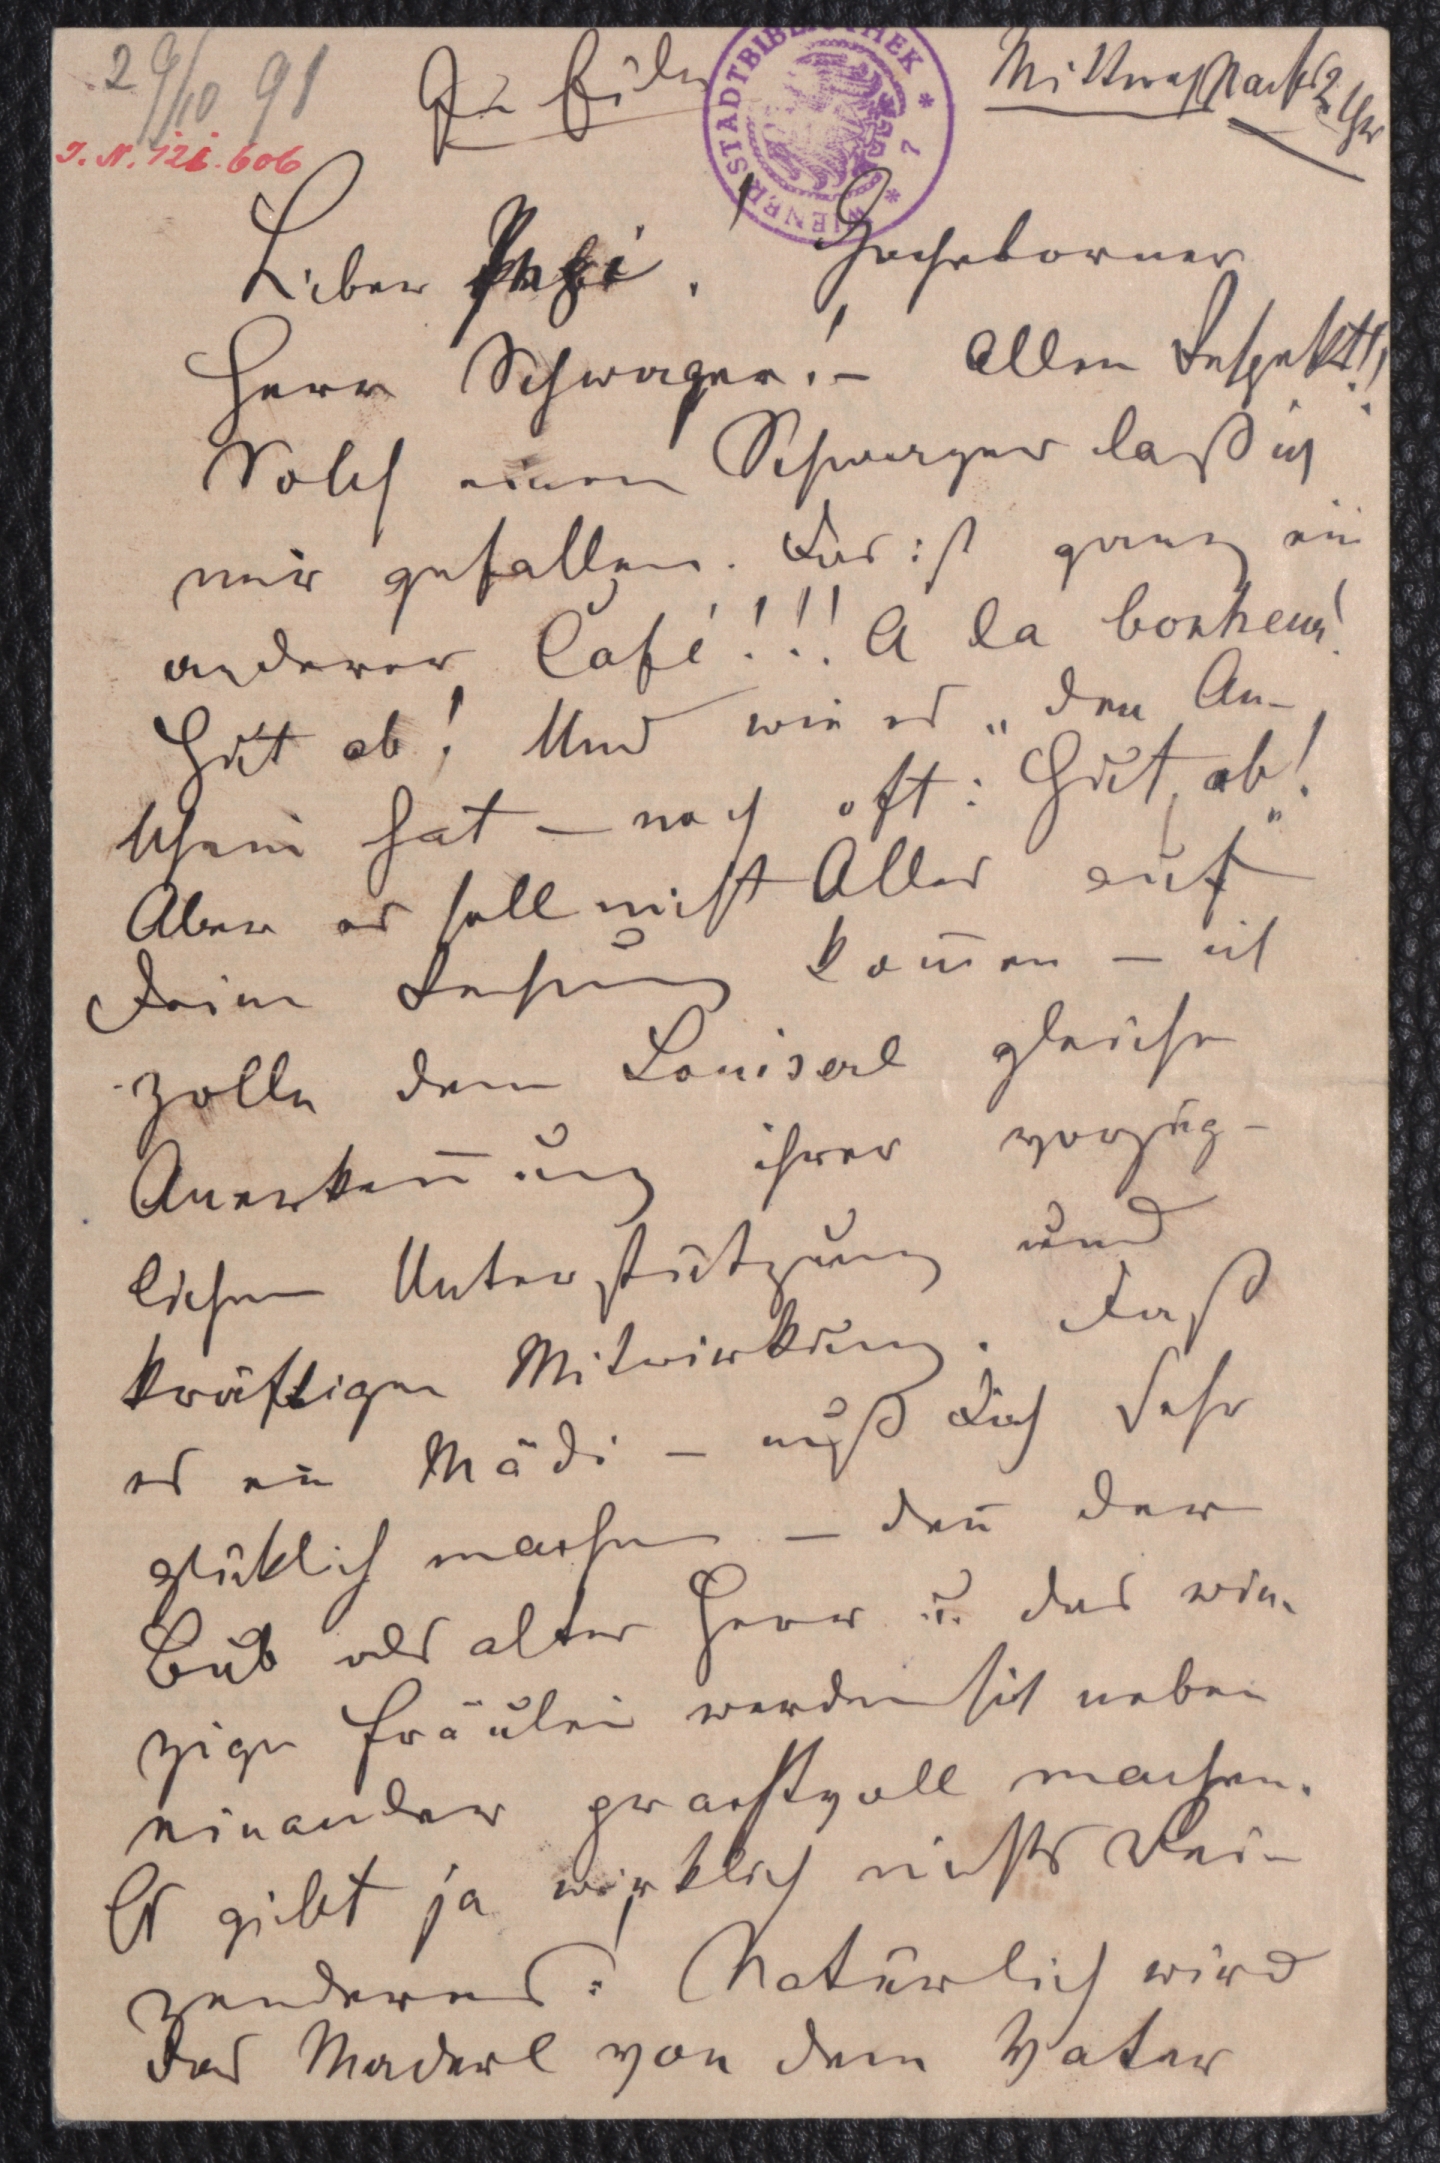 29/10 91
In Eile
Mittwoch Nachts 2 Uhr
WIENER STADTBIBLIOTHEK * 7 *
I. N. 121.606
Lieber! Hochgeborner
Herr Schwager! – Allen Respekt!!
Solch einen Schwager laß ich
mir gefallen. Das ist ganz ein
anderer Café!!! A la bonheur!
Hut ab! Und wie es „den An-
schein hat – noch oft: Hut ab!"
Aber es soll nicht Alles auf
Deine Rechnung kom̄en – ich
zolle dem Louiserl gleiche
Anerken̄ung ihrer vorzüg-
lichen Unterstützung und
kräftigen Mitwirkung. Daß
es ein Mädi – muß Dich sehr
glüklich machen – den̄ der
Bub als alter Herr u. das win-
zige Fräulein werden sich neben
einander prachtvoll machen.
Es gibt ja wirklich nichts Rei-
zenderes! Natürlich wird
das Maderl von dem Vater